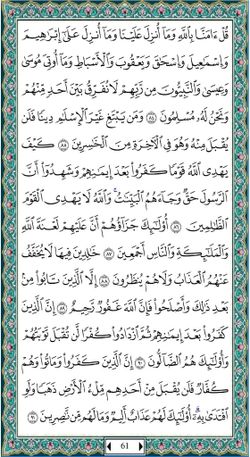 قُلْ ءَامَنَّا بِٱللَّهِ وَمَآ أُنزِلَ عَلَيْنَا وَمَآ أُنزِلَ عَلَىٰٓ إِبْرَٰهِيمَ
وَإِسْمَٰعِيلَ وَإِسْحَٰقَ وَيَعْقُوبَ وَٱلْأَسْبَاطِ وَمَآ أُوتِىَ مُوسَىٰ
وَعِيسَىٰ وَٱلنَّبِيُّونَ مِن رَّبِّهِمْ لَا نُفَرِّقُ بَيْنَ أَحَدٍ مِّنْهُمْ
وَنَحْنُ لَهُۥ مُسْلِمُونَ ٨٤ وَمَن يَبْتَغِ غَيْرَ ٱلْإِسْلَٰمِ دِينًا فَلَن
يُقْبَلَ مِنْهُ وَهُوَ فِى ٱلْءَاخِرَةِ مِنَ ٱلْخَٰسِرِينَ ٨٥ كَيْفَ
يَهْدِى ٱللَّهُ قَوْمًا كَفَرُوا۟ بَعْدَ إِيمَٰنِهِمْ وَشَهِدُوٓا۟ أَنَّ
ٱلرَّسُولَ حَقٌّ وَجَآءَهُمُ ٱلْبَيِّنَٰتُ ۚ وَٱللَّهُ لَا يَهْدِى ٱلْقَوْمَ
ٱلظَّٰلِمِينَ ٨٦ أُو۟لَٰٓئِكَ جَزَآؤُهُمْ أَنَّ عَلَيْهِمْ لَعْنَةَ ٱللَّهِ
وَٱلْمَلَٰٓئِكَةِ وَٱلنَّاسِ أَجْمَعِينَ ٨٧ خَٰلِدِينَ فِيهَا لَا يُخَفَّفُ
عَنْهُمُ ٱلْعَذَابُ وَلَا هُمْ يُنظَرُونَ ٨٨ إِلَّا ٱلَّذِينَ تَابُوا۟ مِنۢ
بَعْدِ ذَٰلِكَ وَأَصْلَحُوا۟ فَإِنَّ ٱللَّهَ غَفُورٌ رَّحِيمٌ ٨٩ إِنَّ ٱلَّذِينَ
كَفَرُوا۟ بَعْدَ إِيمَٰنِهِمْ ثُمَّ ٱزْدَادُوا۟ كُفْرًا لَّن تُقْبَلَ تَوْبَتُهُمْ
وَأُو۟لَٰٓئِكَ هُمُ ٱلضَّآلُّونَ ٩٠ إِنَّ ٱلَّذِينَ كَفَرُوا۟ وَمَاتُوا۟ وَهُمْ
كُفَّارٌ فَلَن يُقْبَلَ مِنْ أَحَدِهِم مِّلْءُ ٱلْأَرْضِ ذَهَبًا وَلَوِ
ٱفْتَدَىٰ بِهِۦٓ ۗ أُو۟لَٰٓئِكَ لَهُمْ عَذَابٌ أَلِيمٌ وَمَا لَهُم مِّن نَّٰصِرِينَ ٩١
61